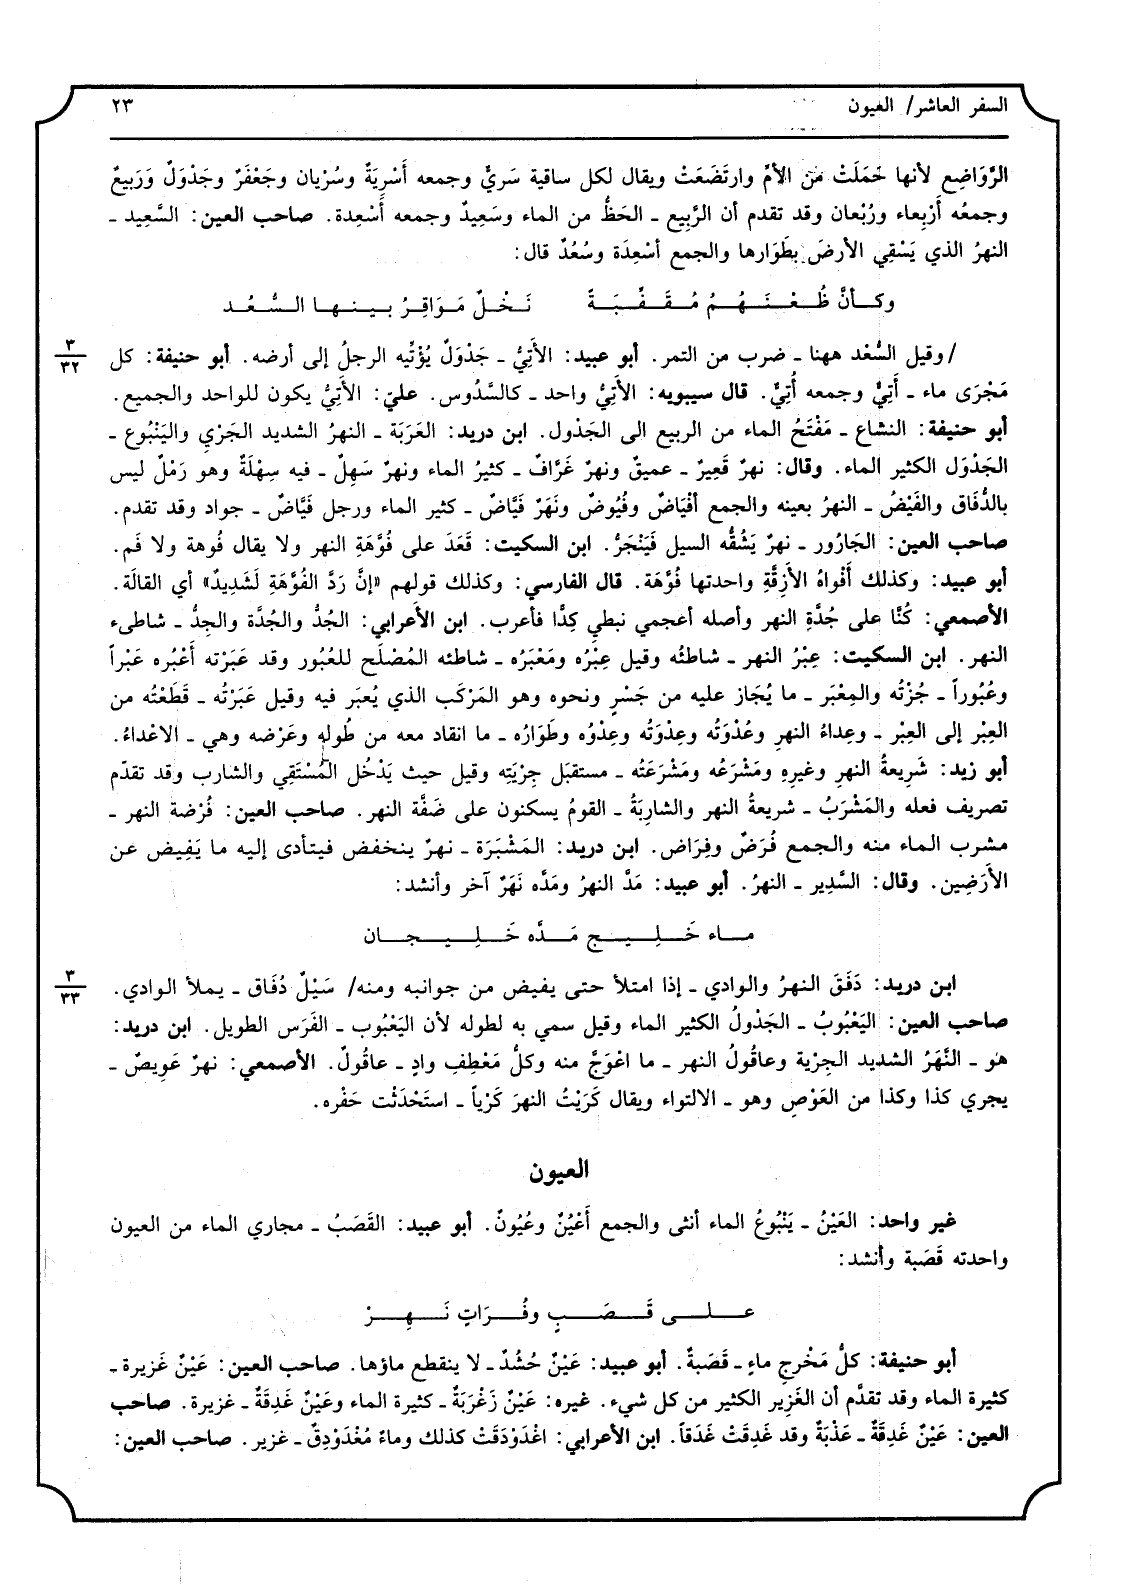 السفر العاشر/ العيون
٢٣
الرَّوَاضِع لأنها حَمَلَتْ مَنَ الأمِّ وارتَضَعَتْ ويقال لكل ساقية سَريٌّ وجمعه أَسْرِيَةٌ وسُرْيان وجَعْفَرٌ وجَدْوَلٌ وَرَبيعٌ
وجمعُه أَرْبِعاء ورُبْعان وقد تقدم أن الرَّبِيع ـ الحَظُّ من الماء وسَعِيدٌ وجمعه أَسْعِدة. صاحب العين: السَّعِيد ـ
النهرُ الذي يَسْقِي الأرضَ بِطَوَارها والجمع أسْعِدَة وسُعُدٌ قال:
وكـأنَّ ظُـعْـنَـهُـمُ مُـقَـفِّـيَـةً نَـخْـلٌ مَـوَاقِـرُ بـيـنـهـا الـسُّـعُـد
٣
٣٢
/وقيل السُّعْد ههنا ـ ضرب من التمر. أبو عبيد: الأَتِيُّ ـ جَدْوَلٌ يُؤَتِّيه الرجلُ إلى أرضه. أبو حنيفة: كل
مَجْرَى ماء ـ أَتِيٌّ وجمعه أُتِيٌّ. قال سيبويه: الأتِيُّ واحد ـ كالسَّدُوس. عليّ: الأَتِيُّ يكون للواحد والجميع.
أبو حنيفة: النشاع ـ مَفْتَحُ الماء من الربيع الى الجَدْول. ابن دريد: العَرَبَة ـ النهرُ الشديد الجَرْي واليَنْبُوع ـ
الجَدْوَل الكثير الماء. وقال: نهرٌ قَعِيرٌ ـ عميقٌ ونهرٌ غَرَّافٌ ـ كثيرُ الماء ونهرٌ سَهِلٌ ـ فيه سِهْلَةٌ وهو رَمْلٌ ليس
بالدُّقَاق والفَيْضُ ـ النهرُ بعينه والجمع أفْيَاضٌ وفُيُوضٌ ونَهَرٌ فَيَّاضٌ ـ كثير الماء ورجل فَيَّاضٌ ـ جواد وقد تقدم.
صاحب العين: الجَارُور ـ نهرٌ يَشُقُّه السيل فَيَنْجَرُّ. ابن السكيت: قَعَدَ على فُوَّهَةِ النهر ولا يقال فُوهة ولا فَم.
أبو عبيد: وكذلك أَفْواهُ الأَزِقَّةِ واحدتها فُوَّهَة. قال الفارسي: وكذلك قولهم «إنَّ رَدَّ الفُوَّهَةِ لَشَدِيدٌ» أي القالَة.
الأصمعي: كُنَّا على جُدَّةِ النهر وأصله أعجمي نبطي كِدًّا فأعرب. ابن الأعرابي: الجُدُّ والجُدَّة والجِدُّ ـ شاطىء
النهر. ابن السكيت: عِبْرُ النهر ـ شاطئُه وقيل عِبْرُه ومَعْبَرُه ـ شاطئه المُصْلَح للعُبُور وقد عَبَرْته أَعْبُره عَبْراً
وعُبُوراً ـ جُزْتُه والمِعْبَر ـ ما يُجَاز عليه من جَسْرٍ ونحوه وهو المَرْكَب الذي يُعبَر فيه وقيل عَبَرْتُه ـ قَطَعْتُه من
العِبْر إلى العِبْر ـ وعِداءُ النهرِ وعُدْوَتُه وعِدْوَتُه وعِدْوُه وطَوَارُه ـ ما انقاد معه من طُولِه وعَرْضه وهي ـ الاعْداءُ.
أبو زيد: شَرِيعةُ النهرِ وغيرِه ومَشْرَعُه ومَشْرَعَتُه ـ مستقبَل جِرْيَتِه وقيل حيث يَدْخُل المُسْتَقِي والشارب وقد تقدّم
تصريف فعله والمَشْرَبُ ـ شريعةُ النهر والشارِبَةُ ـ القومُ يسكنون على ضَفَّة النهر. صاحب العين: فُرْضة النهر ـ
مشرب الماء منه والجمع فُرَضٌ وفِرَاض. ابن دريد: المَشْبَرَة ـ نهرٌ ينخفض فيتأدى إليه ما يَفِيض عن
الأَرَضِين. وقال: السَّدِير ـ النهرُ. أبو عبيد: مَدَّ النهرُ ومَدَّه نَهَرٌ آخر وأنشد:
مـاء خَـلِـيـج مَـدَّه خَـلِـيـجـان
٣
٣٣
ابن دريد: دَفَقَ النهرُ والوادي ـ إذا امتلأ حتى يفيض من جوانبه ومنه/ سَيْلٌ دُفَاق ـ يملأ الوادي.
صاحب العين: اليَعْبُوبُ ـ الجَدْولُ الكثير الماء وقيل سمي به لطوله لأن اليَعْبُوب ـ الفَرَس الطويل. ابن دريد:
هو ـ النَّهَرُ الشديد الجِرْية وعاقُولُ النهر ـ ما اعْوَجَّ منه وكلُّ مَعْطِفِ وادٍ ـ عاقُولٌ. الأصمعي: نهرٌ عَوِيصٌ ـ
يجري كذا وكذا من العَوْصِ وهو ـ الالتواء ويقال كَرَيْتُ النهرَ كَرْياً ـ استَحْدَثْت حَفْره.
العيون
غير واحد: العَيْنُ ـ يَنْبُوعُ الماء أنثى والجمع أَعْيُنٌ وعُيُونٌ. أبو عبيد: القَصَبُ ـ مجاري الماء من العيون
واحدته قَصَبة وأنشد:
عـلـى قَـصَـبٍ وفُـرَاتٍ نَـهِـرْ
أبو حنيفة: كلُّ مَخْرجِ ماءٍ ـ قَصَبَةٌ. أبو عبيد: عَيْنٌ حُشُدٌ ـ لا ينقطع ماؤها. صاحب العين: عَيْنٌ غَزيرة ـ
كثيرة الماء وقد تقدَّم أن الغَزِير الكثير من كل شيء. غيره: عَيْنٌ زَغْرَبَةٌ ـ كثيرة الماء وعَيْنٌ غَدِقَةٌ ـ غزيرة. صاحب
العين: عَيْنٌ غَدِقَةٌ ـ عَذْبَةٌ وقد غَدِقَتْ غَدَقاً. ابن الأعرابي: اغْدَوْدَقَتْ كذلك وماءٌ مُغْدَوْدِقٌ ـ غزير. صاحب العين: